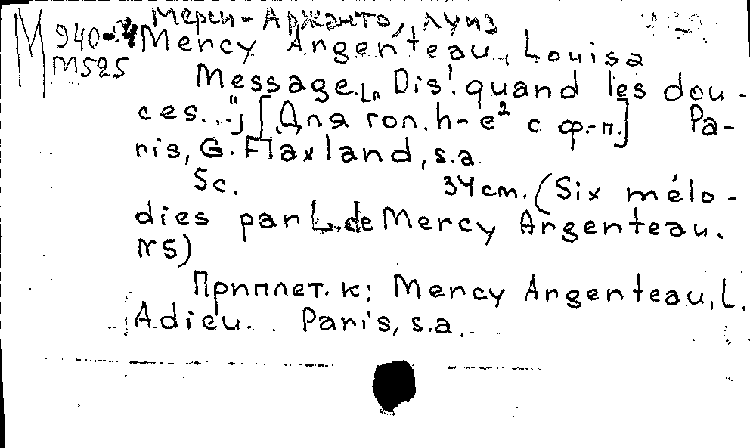 Мерси-Аржанто, Луиз
М 940-4 Mercy Argenteau, Louisa
M525
Message. [„Dis! quand les dou-
ces..."] [Для гол. h-e² с ф.-п.] Pa-
ris, G. Flaxland, s.a.
5c. 34cm. (Six mélo-
dies par L. de Mercy Argenteau.
N5)
Приплет. к: Mercy Argenteau, L.
Adieu.. Paris, s.a.